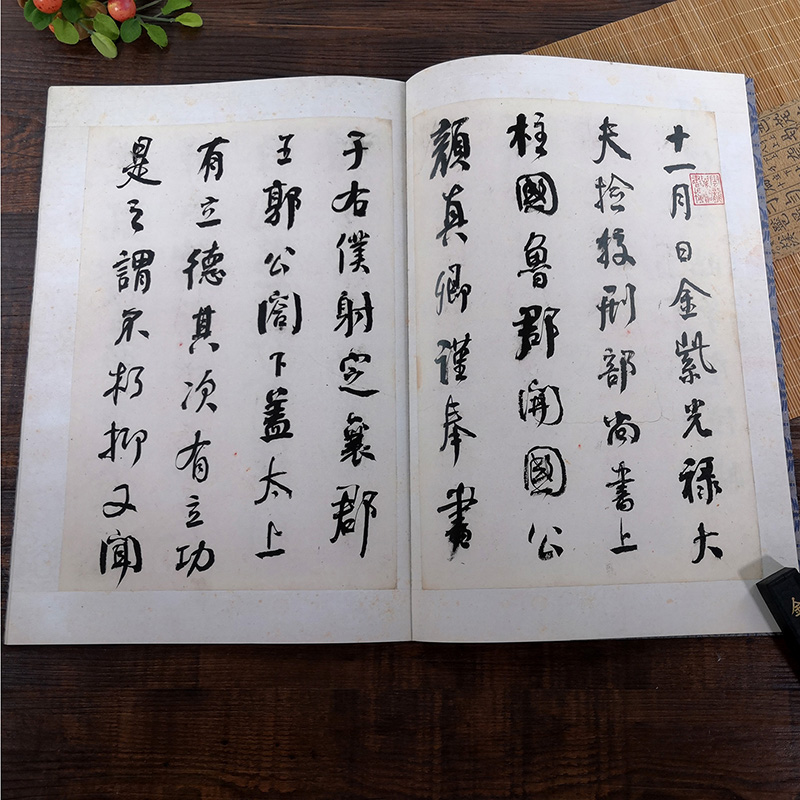 十一月日金紫光禄大
夫捡挍刑部尚書上
柱國魯郡開國公
顔真卿謹奉書
于右僕射定襄郡
王郭公閤下蓋太上
有立德其次有立功
是之謂不朽抑又聞